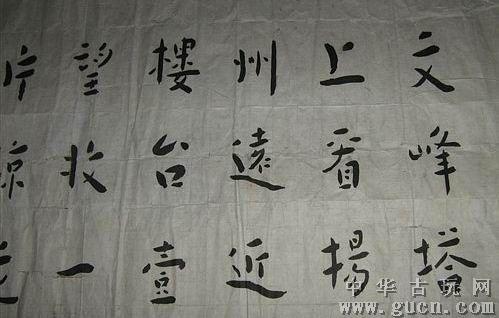 文峰塔
上看揚
州遠近
樓台壹
望收一
片
中华古玩网
www.gucn.com